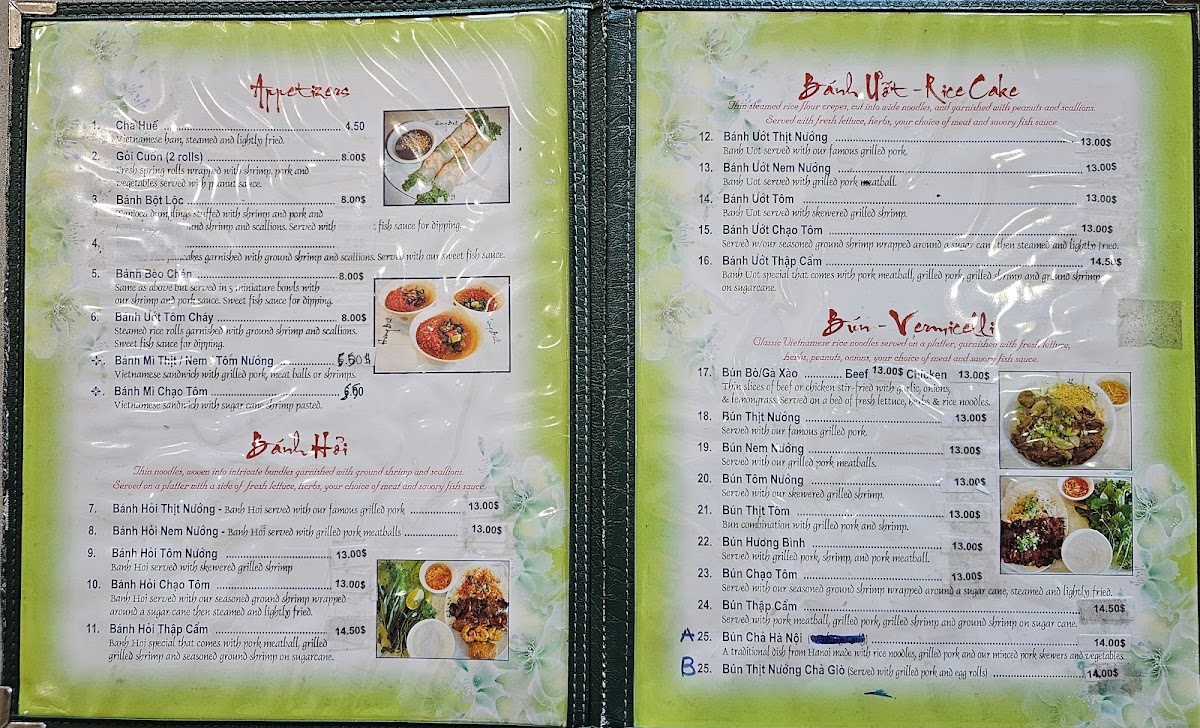 Appetizers
1. Chả Huế 4.50
Vietnamese ham, steamed and lightly fried.
2. Gỏi Cuốn (2 rolls) 8.00$
Fresh spring rolls wrapped with shrimp, pork and
vegetables served with peanut sauce.
3. Bánh Bột Lọc 8.00$
Tapioca dumplings stuffed with shrimp and pork and
und shrimp and scallions. Served with fish sauce for dipping.
4.
cakes garnished with ground shrimp and scallions. Served with our sweet fish sauce.
5. Bánh Bèo Chén 8.00$
Same as above but served in 5 miniature bowls with
our shrimp and pork sauce. Sweet fish sauce for dipping.
6. Bánh Ướt Tôm Cháy 8.00$
Steamed rice rolls garnished with ground shrimp and scallions.
Sweet fish sauce for dipping.
Bánh Mì Thịt / Nem / Tôm Nướng 6.50$
Vietnamese sandwich with grilled pork, meat balls or shrimps.
Bánh Mì Chạo Tôm 6.50
Vietnamese sandwich with sugar cane shrimp pasted.
Bánh Hỏi
Thin noodles, woven into intricate bundles garnished with ground shrimp and scallions.
Served on a platter with a side of fresh lettuce, herbs, your choice of meat and savory fish sauce.
7. Bánh Hỏi Thịt Nướng - Banh Hoi served with our famous grilled pork 13.00$
8. Bánh Hỏi Nem Nướng - Banh Hoi served with grilled pork meatballs 13.00$
9. Bánh Hỏi Tôm Nướng 13.00$
Banh Hoi served with skewered grilled shrimp
10. Bánh Hỏi Chạo Tôm 13.00$
Banh Hoi served with our seasoned ground shrimp wrapped
around a sugar cane then steamed and lightly fried.
11. Bánh Hỏi Thập Cẩm 14.50$
Banh Hoi special that comes with pork meatball, grilled
grilled shrimp and seasoned ground shrimp on sugarcane.
Bánh Ướt - Rice Cake
Thin steamed rice flour crepes, cut into wide noodles, and garnished with peanuts and scallions.
Served with fresh lettuce, herbs, your choice of meat and savory fish sauce.
12. Bánh Ướt Thịt Nướng 13.00$
Banh Uot served with our famous grilled pork.
13. Bánh Ướt Nem Nướng 13.00$
Banh Uot served with grilled pork meatball.
14. Bánh Ướt Tôm 13.00$
Banh Uot served with skewered grilled shrimp.
15. Bánh Ướt Chạo Tôm 13.00$
Served w/our seasoned ground shrimp wrapped around a sugar cane then steamed and lightly fried.
16. Bánh Ướt Thập Cẩm 14.50$
Banh Uot special that comes with pork meatball, grilled pork, grilled shrimp and ground shrimp
on sugarcane.
Bún - Vermicelli
Classic Vietnamese rice noodles served on a platter, garnished with fresh lettuce,
herbs, peanuts, onions, your choice of meat and savory fish sauce.
17. Bún Bò/Gà Xào Beef 13.00$ Chicken 13.00$
Thin slices of beef or chicken stir-fried with garlic, onions,
& lemongrass. Served on a bed of fresh lettuce, herbs & rice noodles.
18. Bún Thịt Nướng 13.00$
Served with our famous grilled pork.
19. Bún Nem Nướng 13.00$
Served with our grilled pork meatballs.
20. Bún Tôm Nướng 13.00$
Served with our skewered grilled shrimp.
21. Bún Thịt Tôm 13.00$
Bun combination with grilled pork and shrimp.
22. Bún Hương Bình 13.00$
Served with grilled pork, shrimp, and pork meatball.
23. Bún Chạo Tôm 13.00$
Served with our seasoned ground shrimp wrapped around a sugar cane, steamed and lightly fried.
24. Bún Thập Cẩm 14.50$
Served with pork meatball, grilled pork, grilled shrimp and ground shrimp on sugar cane.
A 25. Bún Chả Hà Nội 14.00$
A traditional dish from Hanoi made with rice noodles, grilled pork and our minced pork skewers and vegetables.
B 25. Bún Thịt Nướng Chả Giò (Served with grilled pork and egg rolls) 14.00$